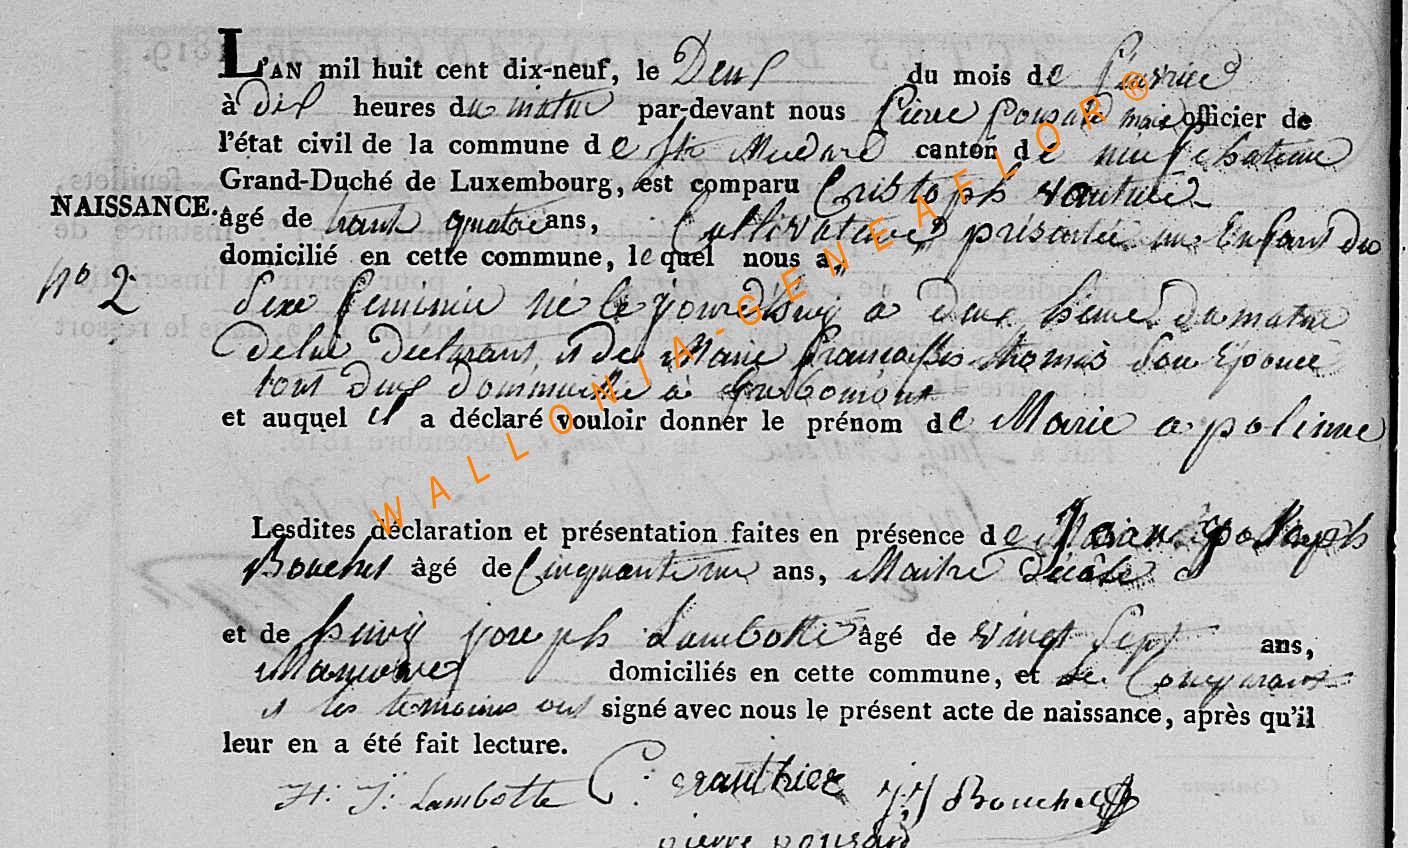 L'AN mil huit cent dix-neuf, le Deux du mois de fevrier
à dix heures du matin par-devant nous pierre ponsard maire officier de
l'état civil de la commune de Ste Medard canton de neufchateau
Grand-Duché de Luxembourg, est comparu Cristoph
NAISSANCE. âgé de trante quatre ans, Cultivateur présentée un Enfant du
domicilié en cette commune, lequel nous a,,
no 2 Sexe feminin né le jourdhuij à deux heure du matin
de lui declarant et de Marie francoisse thomas son Epouce
tout deux à
et auquel il a déclaré vouloir donner le prénom de Marie apolinne
Lesdites déclaration et présentation faites en présence de joseph
Bouchet âgé de Cinquante un ans, Maitre décole
et de henrij joseph Lambotte âgé de vingt sept ans,
Manouvre domiciliés en cette commune, et le Comparant
et les temoins ont signé avec nous le présent acte de naissance, après qu'il
leur en a été fait lecture.
H: J: Lambotte C: J:J Bouchet
pierre ponsard
WALLONIA-GENEAFLOR®